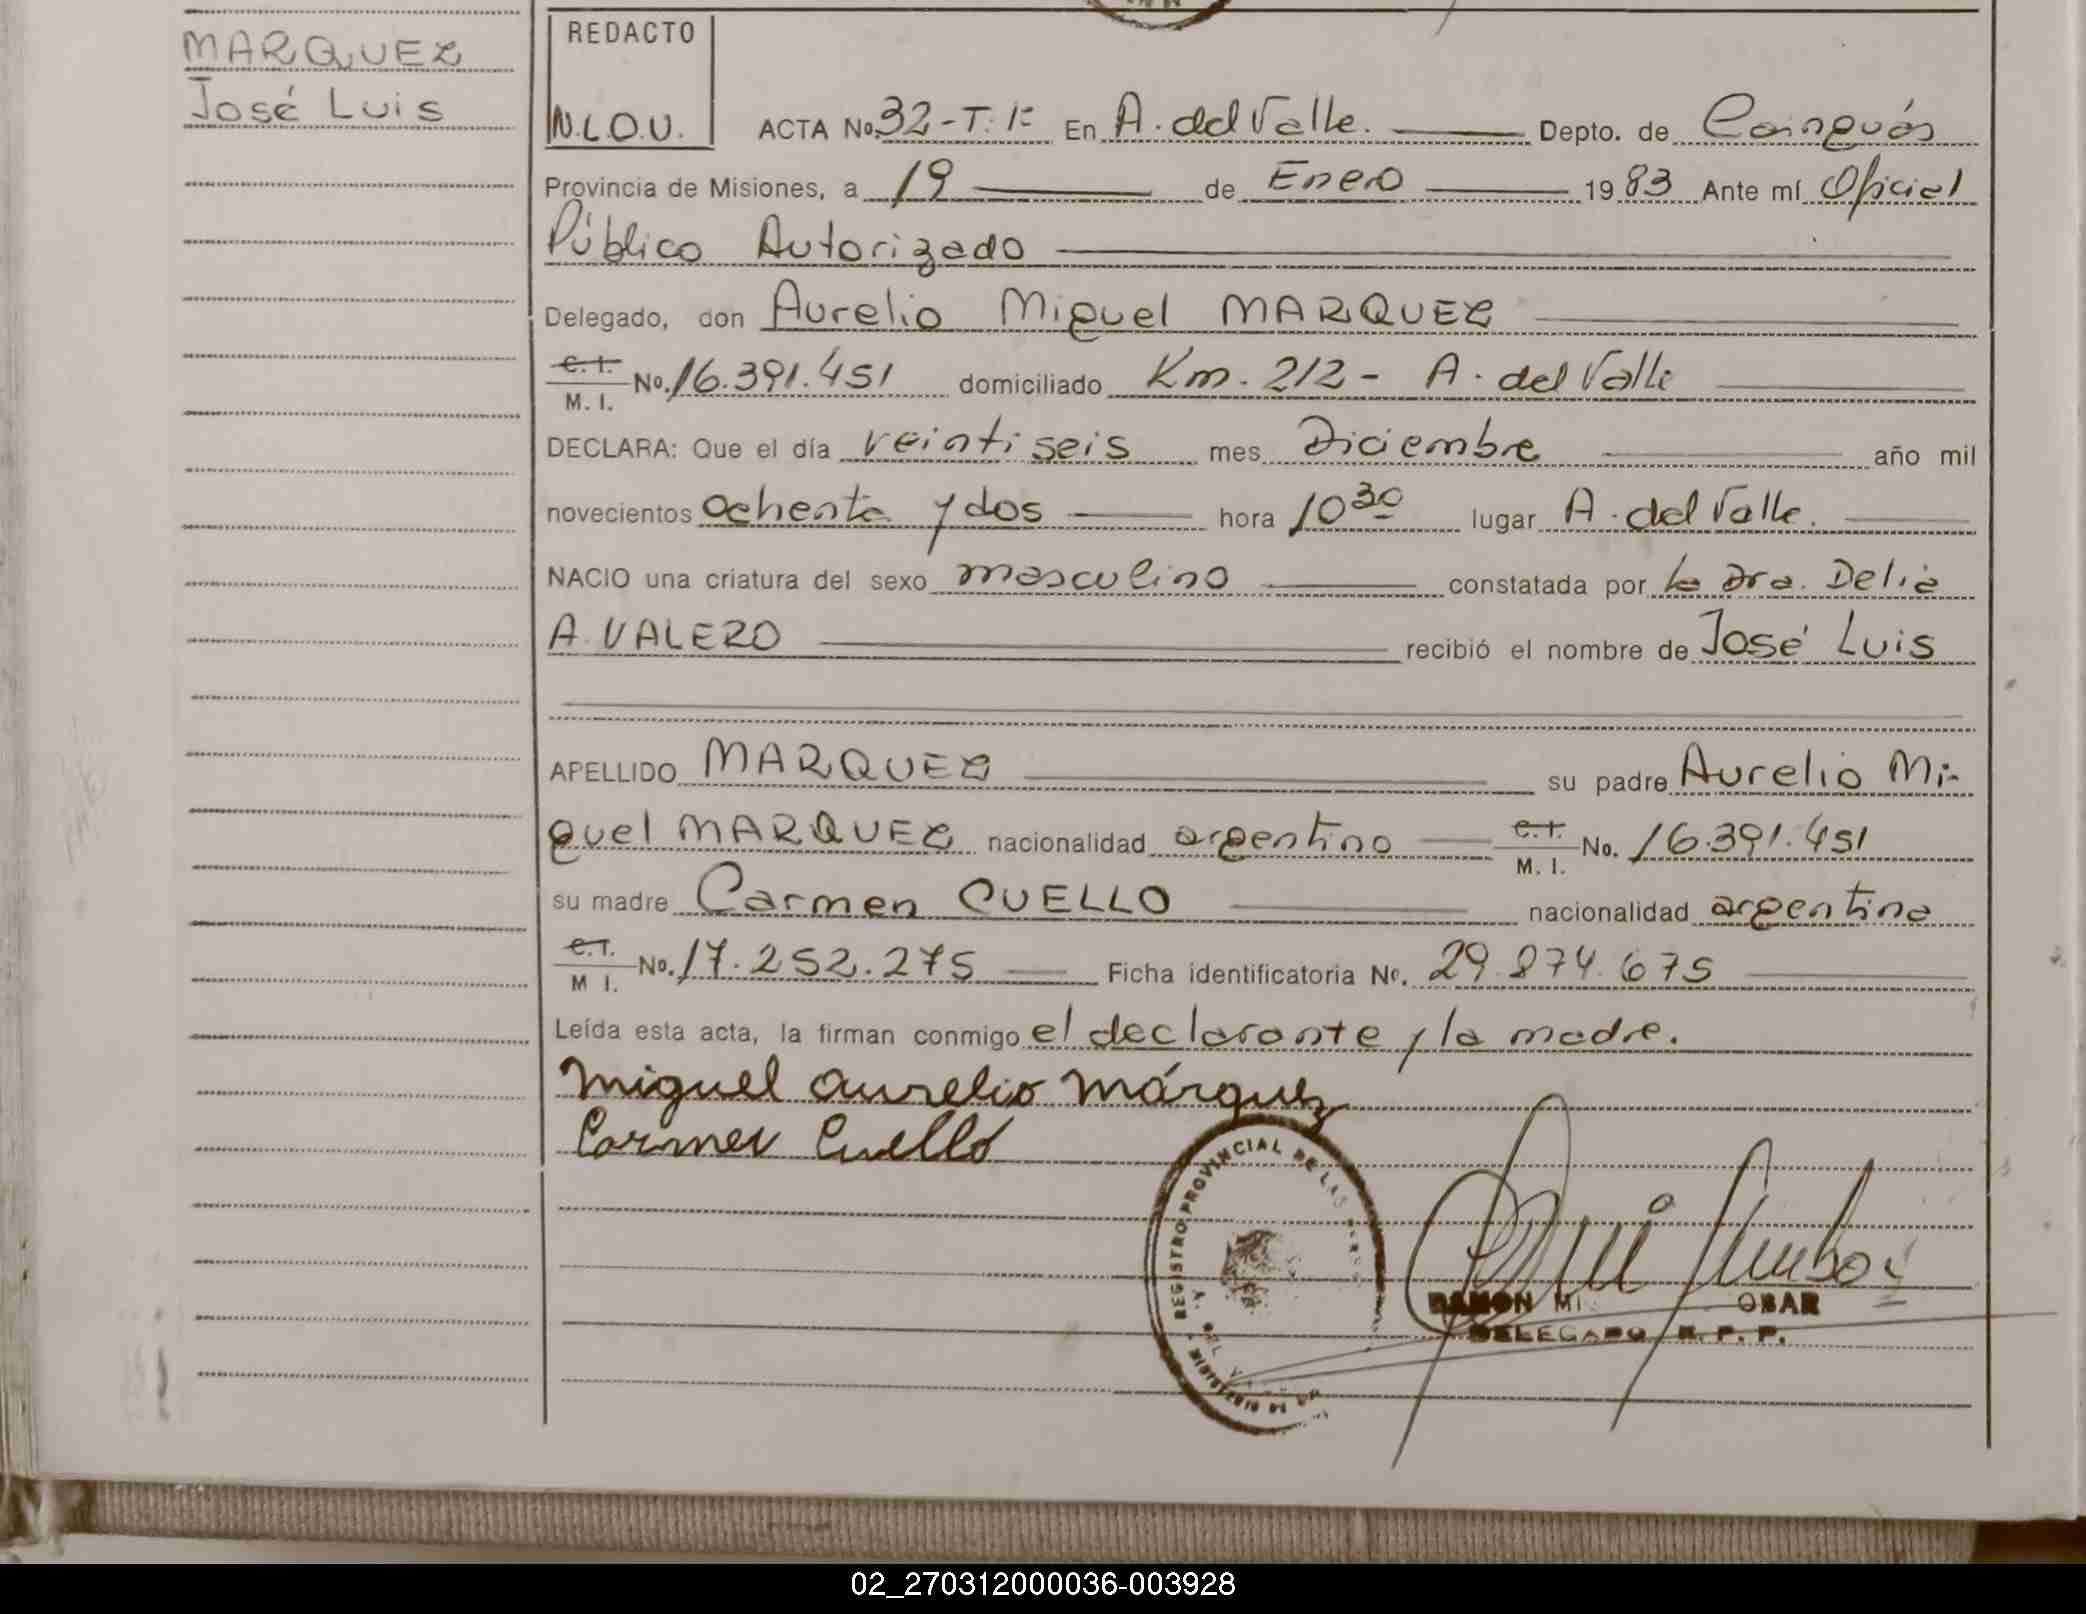 MARQUEZ
José Luis
REDACTO
N.L.O.U.
ACTA No. 32-T. 1º En A. del Valle. Depto. de Cainguás
Provincia de Misiones, a 19 de Enero 1983 Ante mí Oficial
Público Autorizado
Delegado, don Aurelio Miguel MARQUEZ
C.I.
M. I. No. 16.391.451 domiciliado Km. 212 - A. del Valle
DECLARA: Que el día veintiseis mes Diciembre año mil
novecientos ochenta y dos hora 10 30 lugar A. del Valle.
NACIO una criatura del sexo masculino constatada por la Dra. Delia
A. VALERO recibió el nombre de José Luis
APELLIDO MARQUEZ su padre Aurelio Mi-
guel MARQUEZ nacionalidad argentino C.I. M. I. No. 16.391.451
su madre Carmen CUELLO nacionalidad argentina
C.I. M I. No. 17.252.275 Ficha identificatoria No. 29.874.675
Leída esta acta, la firman conmigo el declarante y la madre.
Miguel Aurelio Márquez
Carmen Cuello
REGISTRO PROVINCIAL DE LAS
RAMON MI OBAR
DELEGADO R. P. P.
02_270312000036-003928